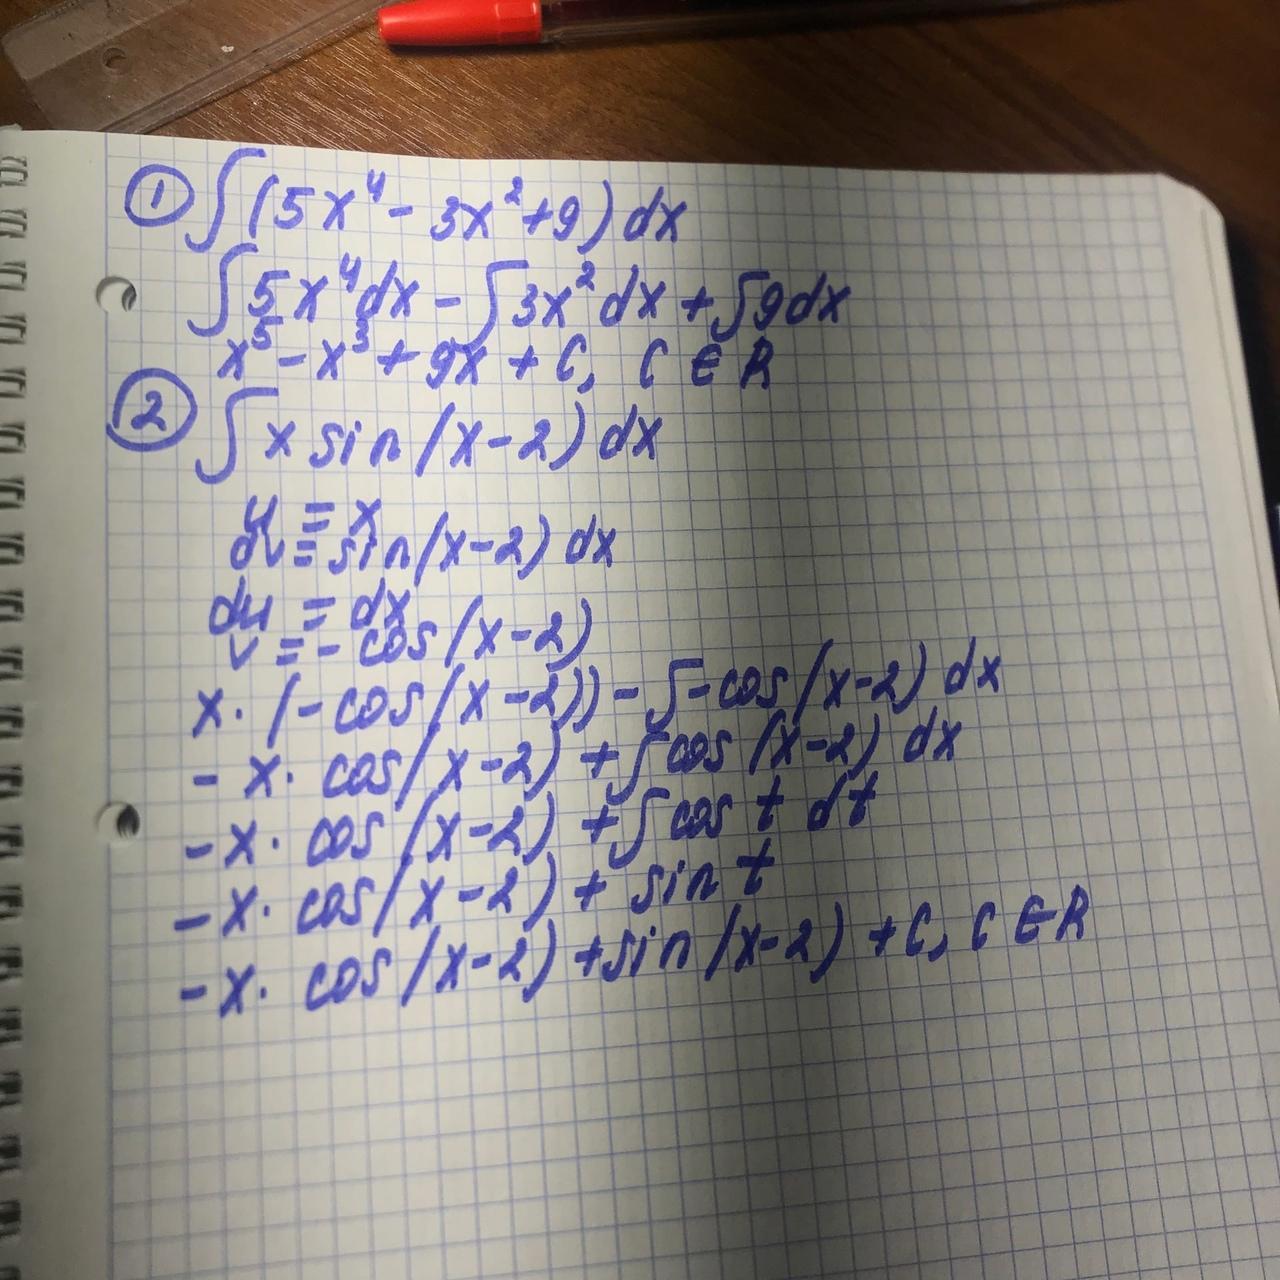 ① ∫(5x⁴ - 3x² + 9) dx
∫5x⁴dx - ∫3x²dx + ∫9dx
x⁵ - x³ + 9x + C, C ∈ R
② ∫x sin(x-2) dx
u = x
dv = sin(x-2) dx
du = dx
v = - cos(x-2)
x · (-cos(x-2)) - ∫-cos(x-2) dx
- x · cos(x-2) + ∫cos(x-2) dx
- x · cos(x-2) + ∫cos t dt
- x · cos(x-2) + sin t
- x · cos(x-2) + sin(x-2) + C, C ∈ R